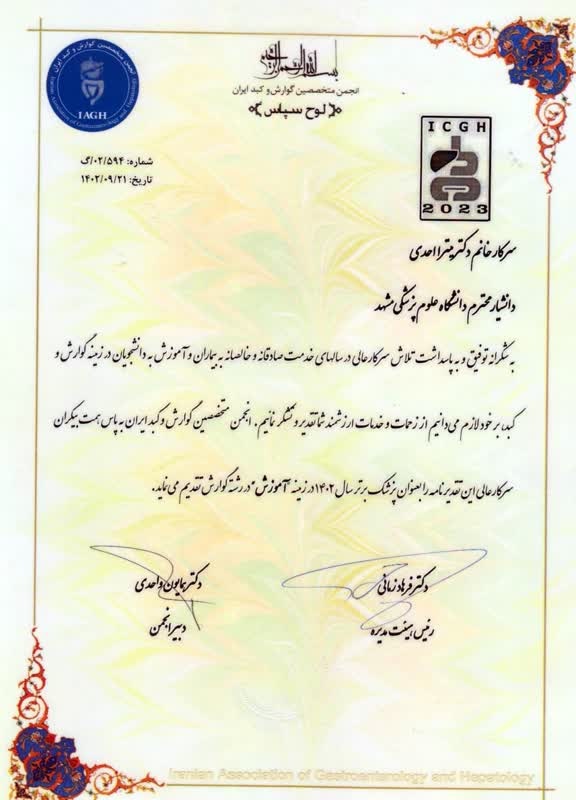 بسم الله الرحمن الرحیم
انجمن متخصصین گوارش و کبد ایران
لوح سپاس
انجمن متخصصین گوارش و کبد ایران
Iranian Association of Gastroenterology and Hepatology
IAGH
شماره: ۰۲/۵۹۴/گ
تاریخ: ۱۴۰۲/۰۹/۲۱
ICGH
2023
سرکار خانم دکتر میترا احدی
دانشیار محترم دانشگاه علوم پزشکی مشهد
به شکرانه توفیق و به پاسداشت تلاش سرکارعالی در سالهای خدمت صادقانه و خالصانه به بیماران و آموزش به دانشجویان در زمینه گوارش و
کبد، بر خود لازم می‌دانیم از زحمات و خدمات ارزشمند شما تقدیر و تشکر نمائیم. انجمن متخصصین گوارش و کبد ایران به پاس همت بیکران
سرکارعالی این تقدیرنامه را بعنوان پزشک برتر سال ۱۴۰۲ در زمینه "آموزش" در رشته گوارش تقدیم می نماید.
دکتر فرهاد زمانی
رئیس هیئت مدیره
دکتر همایون واحدی
دبیر انجمن
Iranian Association of Gastroenterology and Hepatology